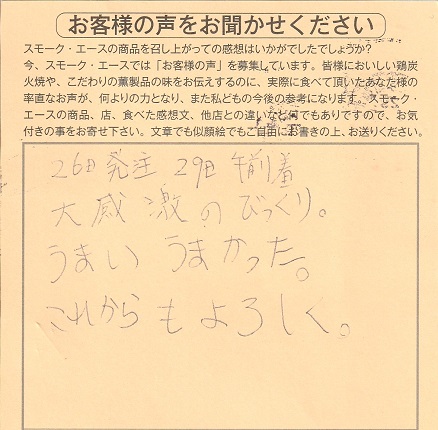 お客様の声をお聞かせください
スモーク・エースの商品を召し上がっての感想はいかがでしたでしょうか?
今、スモーク・エースでは「お客様の声」を募集しています。皆様においしい鶏炭
火焼や、こだわりの薫製品の味をお伝えするのに、実際に食べて頂いたあなた様の
率直なお声が、何よりの力となり、また私どもの今後の参考になります。スモーク・
エースの商品、店、食べた感想文、他店との違いなど何でもありですので、お気
付きの事をお寄せ下さい。文章でも似顔絵でもご自由にお書きの上、お送りください。
26日発注 29日午前着
大感激のびっくり。
うまい うまかった。
これからもよろしく。